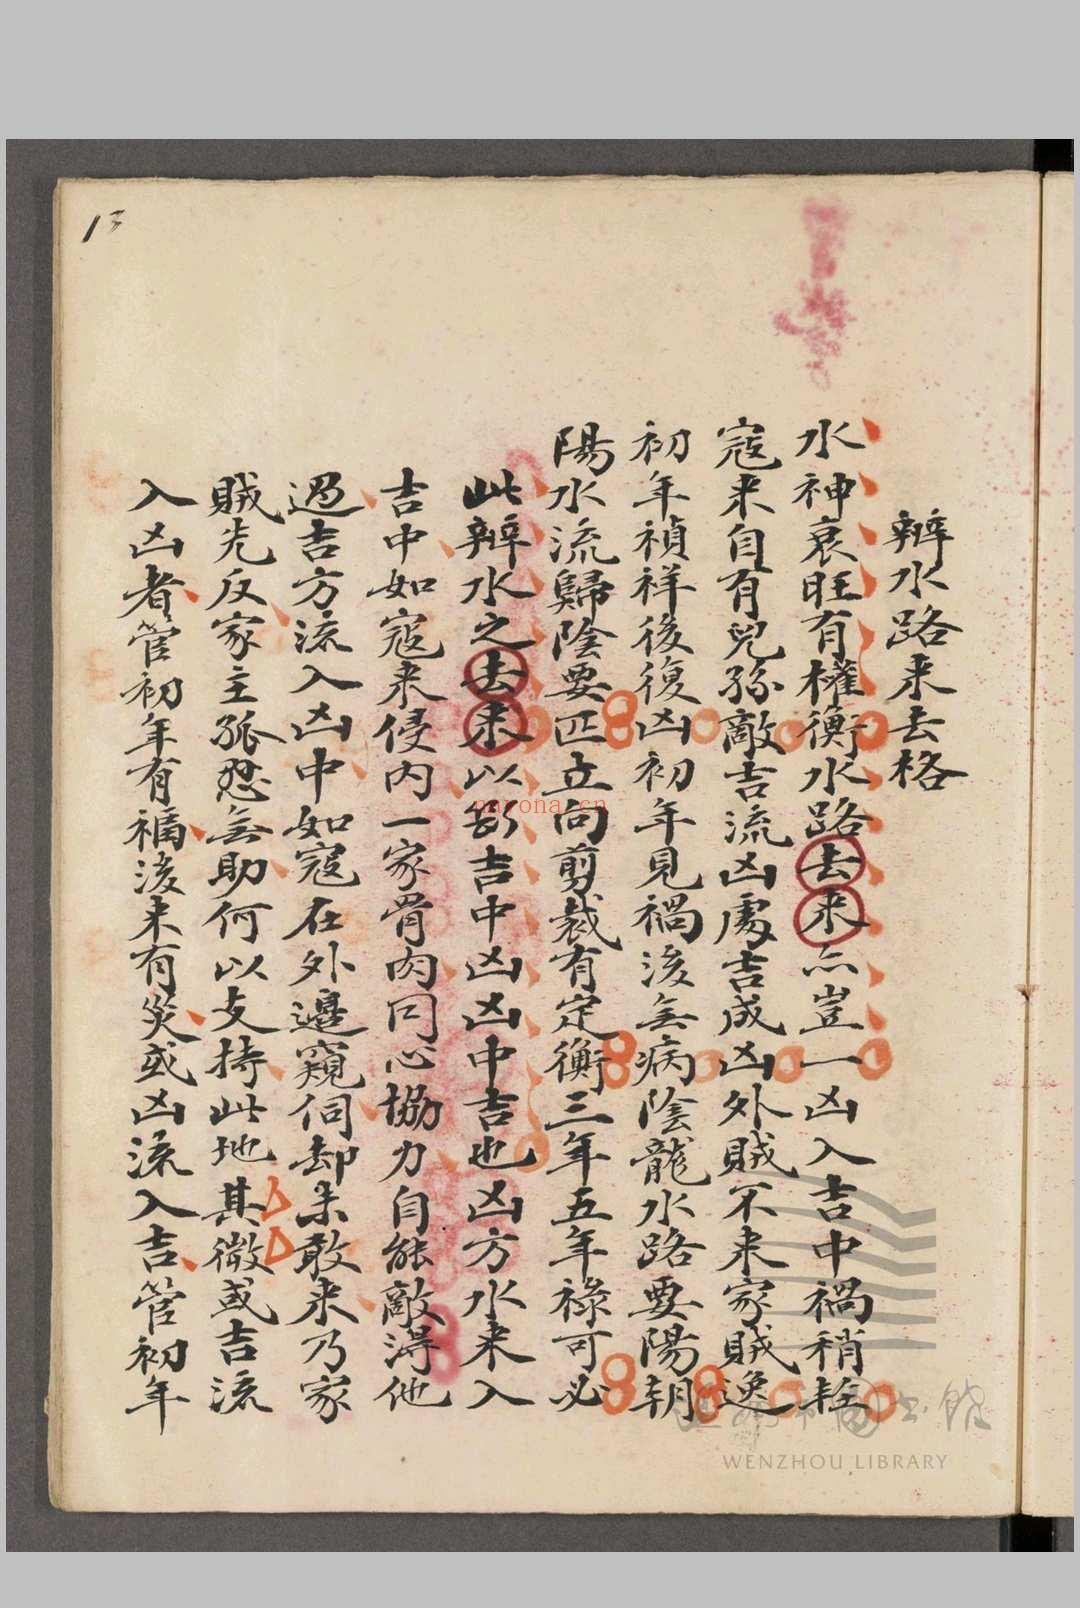 13
辦水路来去格
水神衰旺有權衡水路去来亦豈一凶入吉中禍稍輕
寇来自有兒孫敵吉流凶處吉成凶外賊不来家賊逸
初年禎祥後復凶初年見禍後無病陰龍水路要陽朝
陽水流歸陰要匹立向剪裁有定衡三年五年祿可必
此辦水之去来以断吉中凶凶中吉也凶方水来入
吉中如寇来侵内一家骨肉同心協力自能敵得他
過吉方流入凶中如寇在外邊窺伺却未敢来乃家
賊先反家主孤忍無助何以支持此地其微或吉流
入凶者管初年有福後来有災或凶流入吉管初年
parona.cn
WENZHOU LIBRARY